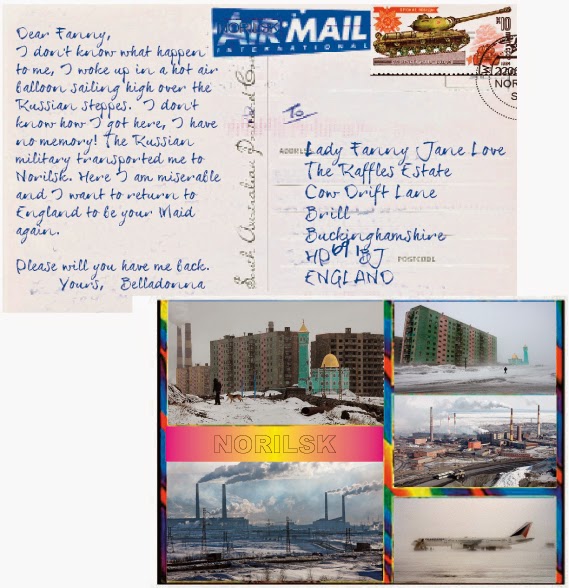 Dear Fanny,
I don't know what happen
to me, I woke up in a hot air
balloon sailing high over the
Russian steppes. I don't
know how I got here, I have
no memory! The Russian
military transported me to
Norilsk. Here I am miserable
and I want to return to
England to be your Maid
again.
Please will you have me back.
Yours, Belladonna
AIR MAIL
INTERNATIONAL
NORILSK
К10
To
ADDRESS
Lady Fanny Jane Love
The Raffles Estate
Cow Drift Lane
Brill
Buckinghamshire
HP69 1BJ
POSTCODE
ENGLAND
NORILSK